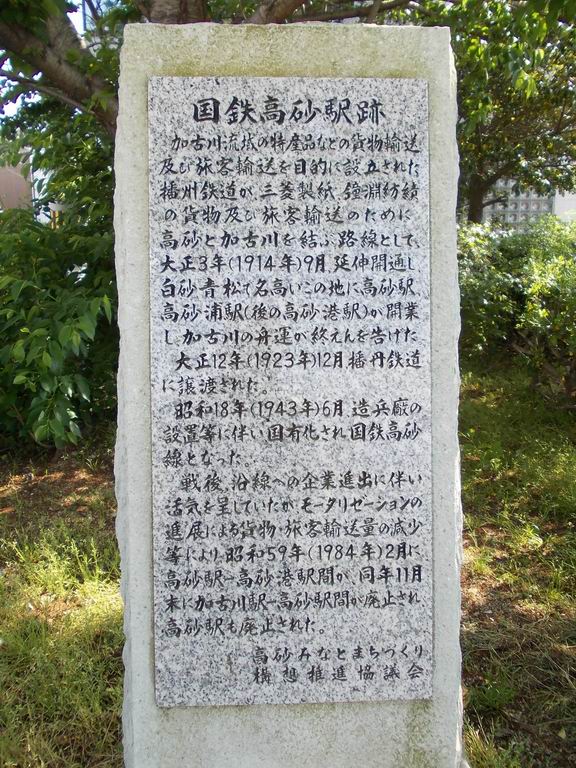 国鉄高砂駅跡
加古川流域の特産品などの貨物輸送
及び旅客輸送を目的に設立された
播州鉄道が、三菱製紙、鐘淵紡績
の貨物及び旅客輸送のために
高砂と加古川を結ぶ路線として、
大正3年(1914年)9月延伸開通し
白砂青松で名高いこの地に高砂駅
高砂浦駅(後の高砂港駅)が開業
し加古川の舟運が終えんを告げた
大正12年(1923年)12月播丹鉄道
に譲渡された。
昭和18年(1943年)6月造兵廠の
設置等に伴い国有化され国鉄高砂
線となった。
戦後、沿線への企業進出に伴い
活気を呈していたがモータリゼーションの
進展による貨物・旅客輸送量の減少
等により、昭和59年(1984年)2月に
高砂駅ー高砂港駅間が、同年11月
末に加古川駅ー高砂駅間が廃止され
高砂駅も廃止された。
高砂みなとまちづくり
構想推進協議会